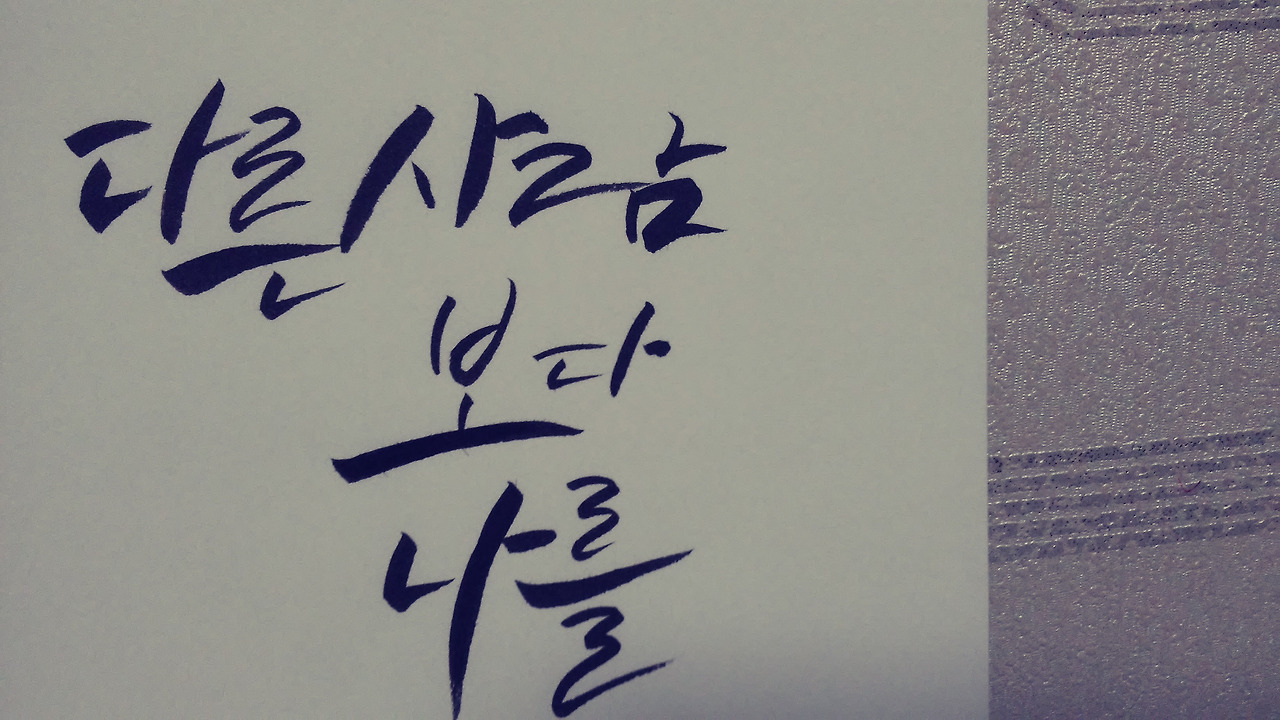 다른 사람
보다
나를